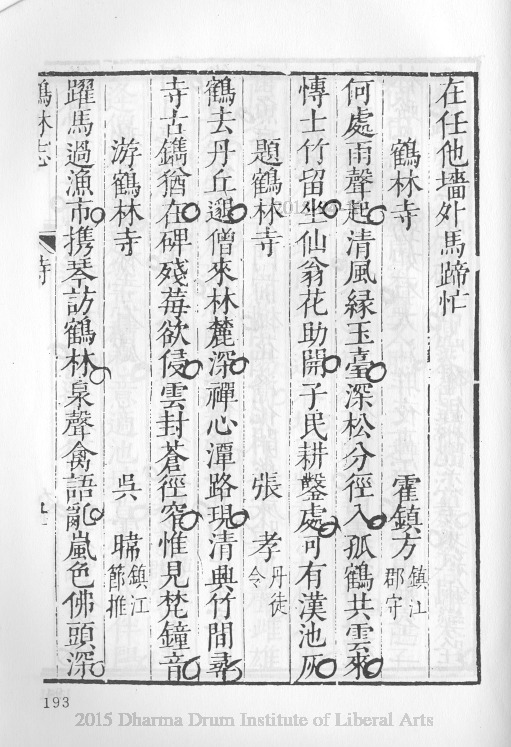 在任他墻外馬蹄忙
鶴林寺 霍鎮方 鎮江郡守
何處雨聲起清風緣玉臺深松分徑入孤鶴共雲來
慱士竹留坐仙翁花助開子民耕鑿處可有漢池灰
題鶴林寺 張 孝 丹徒令
鶴去丹丘邈僧來林麓深禪心潭路現清興竹間尋
寺古鐫猶在碑殘莓欲侵雲封蒼徑窄惟見梵鐘音
游鶴林寺 吳 鎮江節推
躍馬過漁市携琴訪鶴林泉聲禽語亂嵐色佛頭深
鶴林志 寺
193
2015 Dharma Drum Institute of Liberal Arts